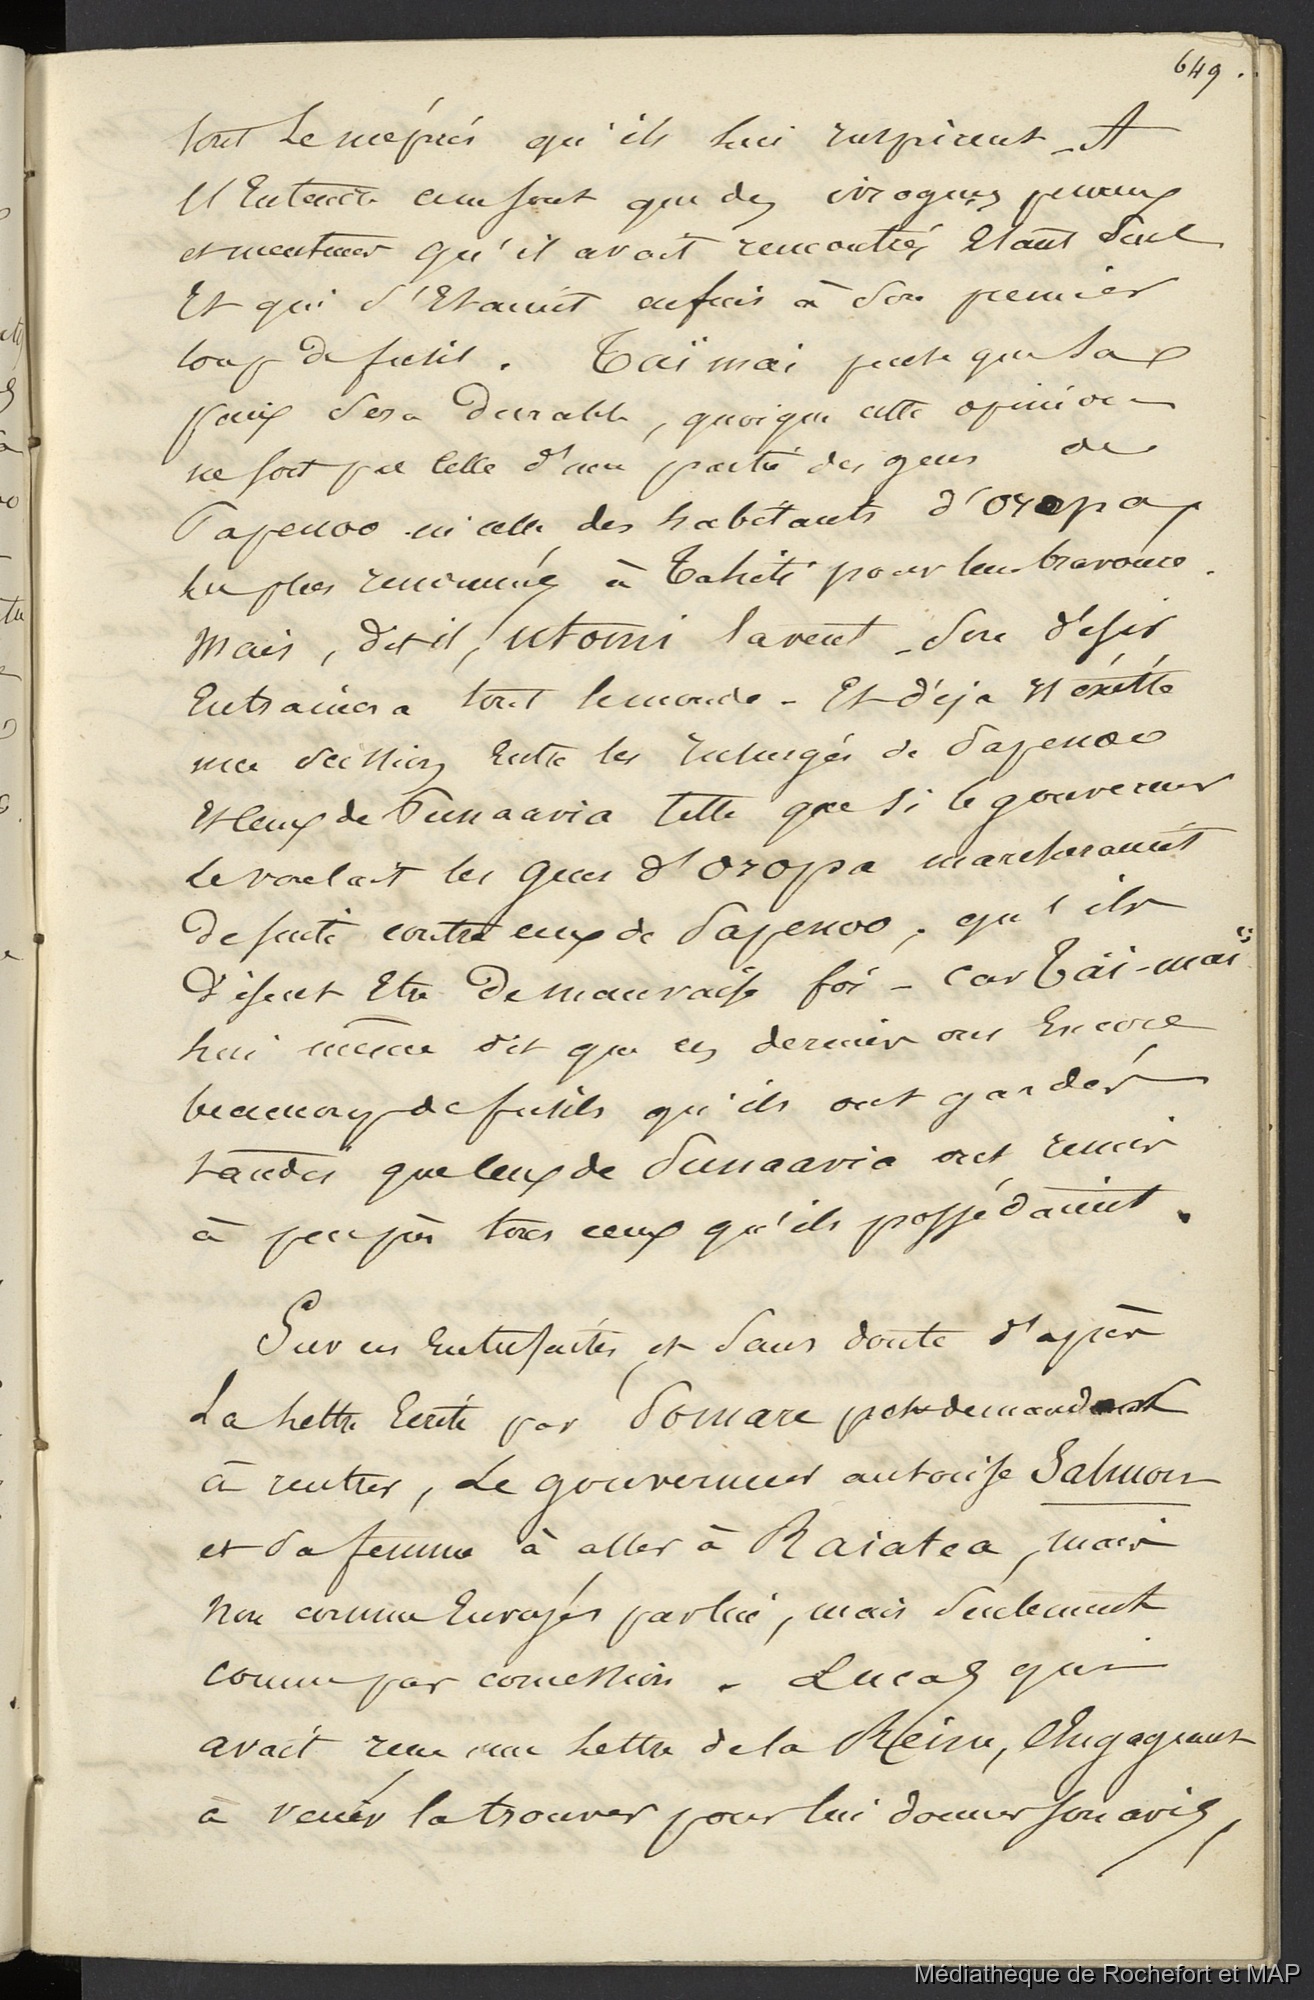 649.
tout le mépris qu'ils lui inspirent - A
l'Entendre ce ne sont que des ivrognes peureux
et menteurs qu'il avait rencontrés Etant seul
Et qui s'Etaient enfuis à son premier
coup de fusil. Taïmai pense que la
paix sera durable, quoique cette opinion
ne soit pas celle d'une partie des gens de
Papenoo ni celle des habitants d'Oropa
les plus renommés à Tahiti pour leur bravoure.
Mais, dit il, Utomi l'ayant son désir
Entrainera tout le monde - Et déja Il éxiste
une scission Entre les insurgés de Papenoo
Et ceux de Punaavia telle que si le gouverneur
le voulait les gens d'Oropa marcheraient
de suite contre ceux de Papenoo, qu'ils
disent Etre de mauvaise foi - Car Taï-maï
lui même dit que ces derniers ont Encore
beaucoup de fusils qu'ils ont gardés
tandis que ceux de Punaavia ont remis
à peu près tous ceux qu'ils possédaient.
Sur ces Entrefaites, et sans doute d'après
La lettre Ecrite par Pomare demandant
à rentrer, Le gouverneur autorise Salmon
et sa femme à aller à Raiatea, mais
non comme Envoyés par lui, mais seulement
comme par concession. Lucas qui
avait reçu une lettre de la Reine, l'Engageant
à venir la trouver pour lui donner son avis,
Médiathèque de Rochefort et MAP